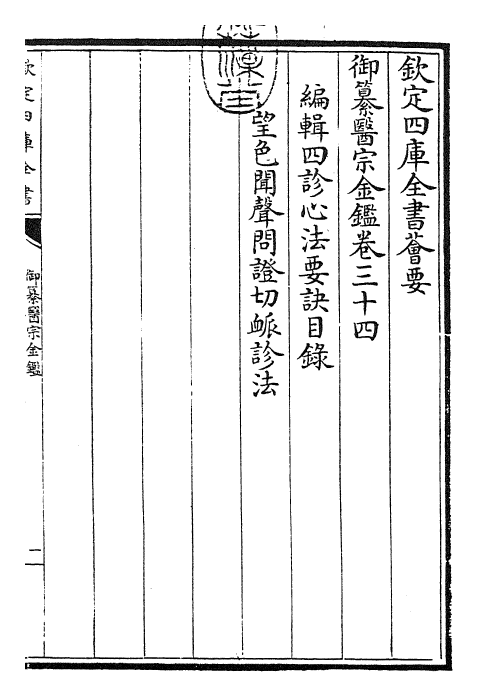 欽定四庫全書薈要
御纂醫宗金鑑卷三十四
編輯四診心法要訣目錄
望色聞聲問證切脈診法
欽定四庫全書
御纂醫宗金鑑
二